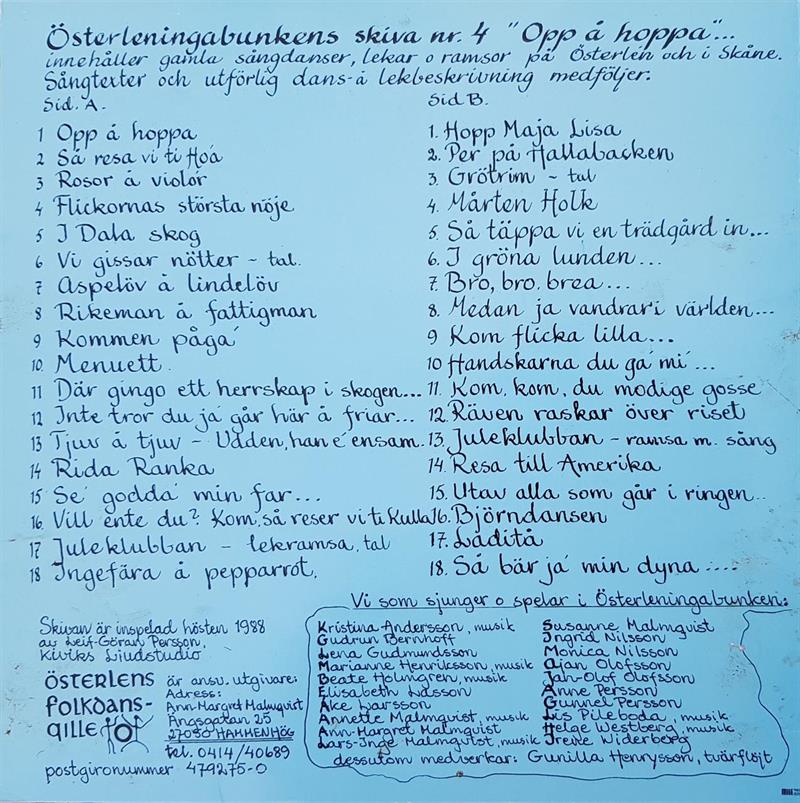 Österleningabunkens skiva nr. 4 "Opp å hoppa"...
innehåller gamla sångdanser, lekar o ramsor på Österlen och i Skåne.
Sångtexter och utförlig dans-å lekbeskrivning medföljer.
Sid. A.
1 Opp å hoppa
2 Så resa vi ti Hoá
3 Rosor å violór
4 Flickornas största nöje
5 I Dala skog
6 Vi gissar nötter - tal.
7 Aspelöv å lindelöv
8 Rikeman å fattigman
9 Kommen pågá
10. Menuett.
11 Där gingo ett herrskap i skogen...
12 Inte tror du já går här å friar...
13 Tjuv å tjuv - Udden, han é ensam.
14 Rida Ranka
15 Sé goddá min far...
16. Vill ente du? Kom, så reser vi ti Kulla
17 Juleklubban - lekramsa, tal
18 Ingefära å pepparrot.
Sid B.
1. Hopp Maja Lisa
2. Per på Hallabacken
3. Grötrim - tal
4. Mårten Holk
5. Så täppa vi en trädgård in...
6. I gröna lunden...
7. Bro, bro, brea...
8. Medan ja vandrar i världen...
9 Kom flicka lilla...
10 Handskarna du gá mí...
11. Kom, kom, du modige gosse
12. Räven raskar över riset
13. Juleklubban - ramsa m. sång
14. Resa till Amerika
15. Utav alla som går i ringen..
16. Björndansen
17. Laditå
18. Så bär já min dyna ....
Skivan är inspelad hösten 1988
av Leif-Göran Persson,
Kiviks Ljudstudio
ÖSTERLENS
folkdans-
gille
är ansv. utgivare:
Adress:
Ann-Margret Malmqvist
Ängsgatan 25
27050 HAMMENHÖG
tel. 0414/40689
postgironummer 479275-0
Vi som sjunger o spelar i Österleningabunken:
Kristina Andersson, musik
Gudrun Bernhoff
Lena Gudmundsson
Marianne Henriksson, musik
Beate Holmgren, musik
Elisabeth Larsson
Åke Larsson
Annette Malmqvist, musik
Ann-Margret Malmqvist
Lars-Inge Malmqvist, musik
Susanne Malmqvist
Ingrid Nilsson
Monica Nilsson
Ajan Olofsson
Jan-Olof Olofsson
Anne Persson
Gunnel Persson
Lis Pileboda, musik
Helge Westberg, musik
Irene Widerberg
dessutom medverkar: Gunilla Henrysson, tvärflöjt